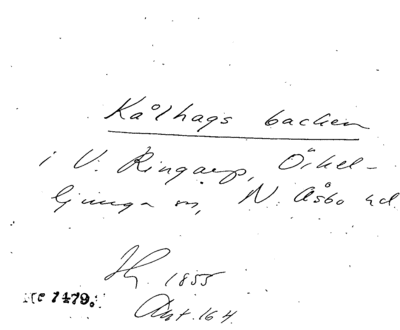 Kålhags backen
i V. Ringarp, Örkel-
ljunga sn, N. Åsbo hd
1855
Ant. 164.
Acc 1479.